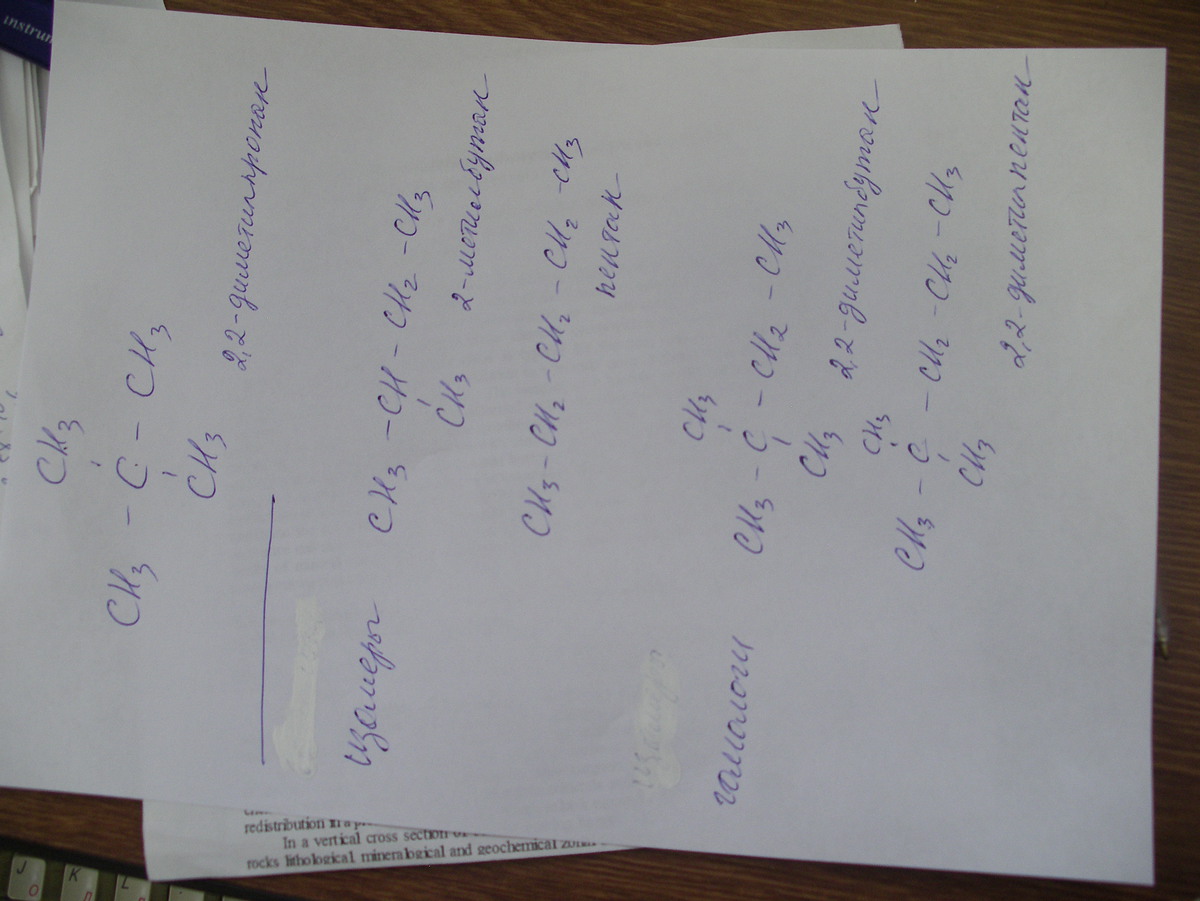 CH3
CH3 – C – CH3
CH3
2,2-диметилпропан
изомеры
CH3 – CH – CH2 – CH3
CH3
2-метилбутан
CH3 – CH2 – CH2 – CH2 – CH3
пентан
гомологи
CH3
CH3 – C – CH2 – CH3
CH3
2,2-диметилбутан
CH3
CH3 – C – CH2 – CH2 – CH3
CH3
2,2-диметилпентан
redistribution in a
In a vertical cross section of
rocks lithological, mineralogical and geochemical
J
K
L